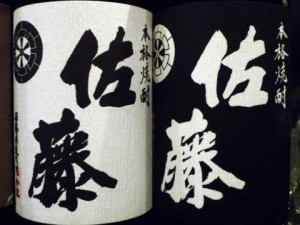 本格焼酎
佐藤
本格焼酎
佐藤